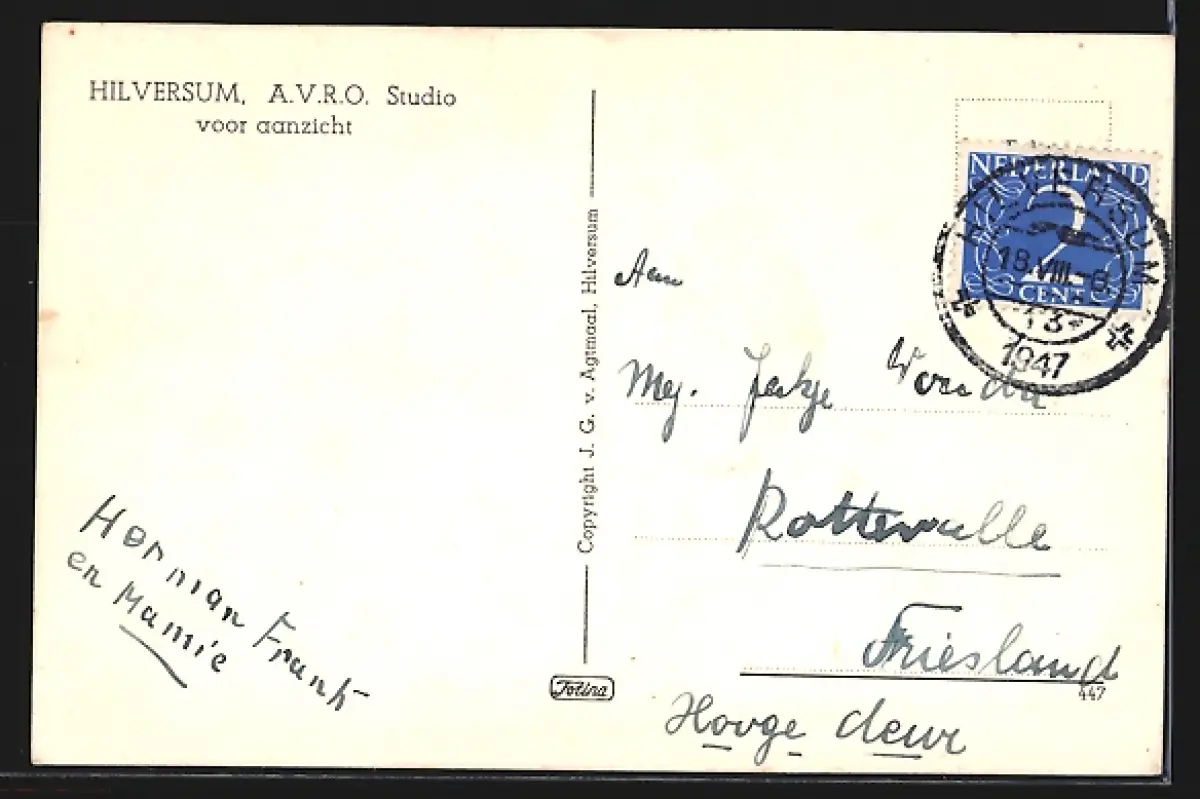 HILVERSUM, A.V.R.O. Studio
voor aanzicht
Herman Frank
en Mamie
Copyright J. G. v. Agtmaal, Hilversum
Fotina
NEDERLAND
2
CENT
HILVERSUM
18.VIII.
13
1947
Aan
Mej. Jetje Wouda
Rottevalle
Friesland
447
Hooge deur